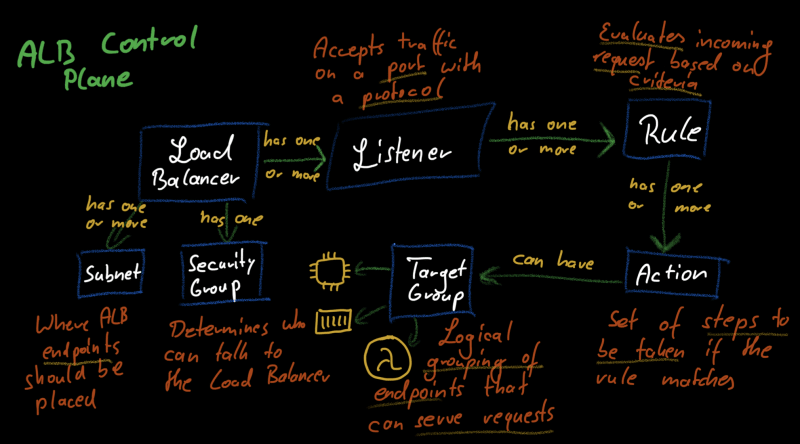 ALB Control
Plane
Accepts traffic
on a port with
a protocol
Evaluates incoming
request based on
criteria
Load
Balancer
has one
or more
Listener
has one
or more
Rule
has one
or more
has one
has one
or more
Subnet
Security
Group
Target
Group
can have
Action
Where ALB
endpoints
should be
placed
Determines who
can talk to
the Load Balancer
λ
Logical
grouping of
endpoints that
can serve requests
Set of steps to
be taken if the
rule matches